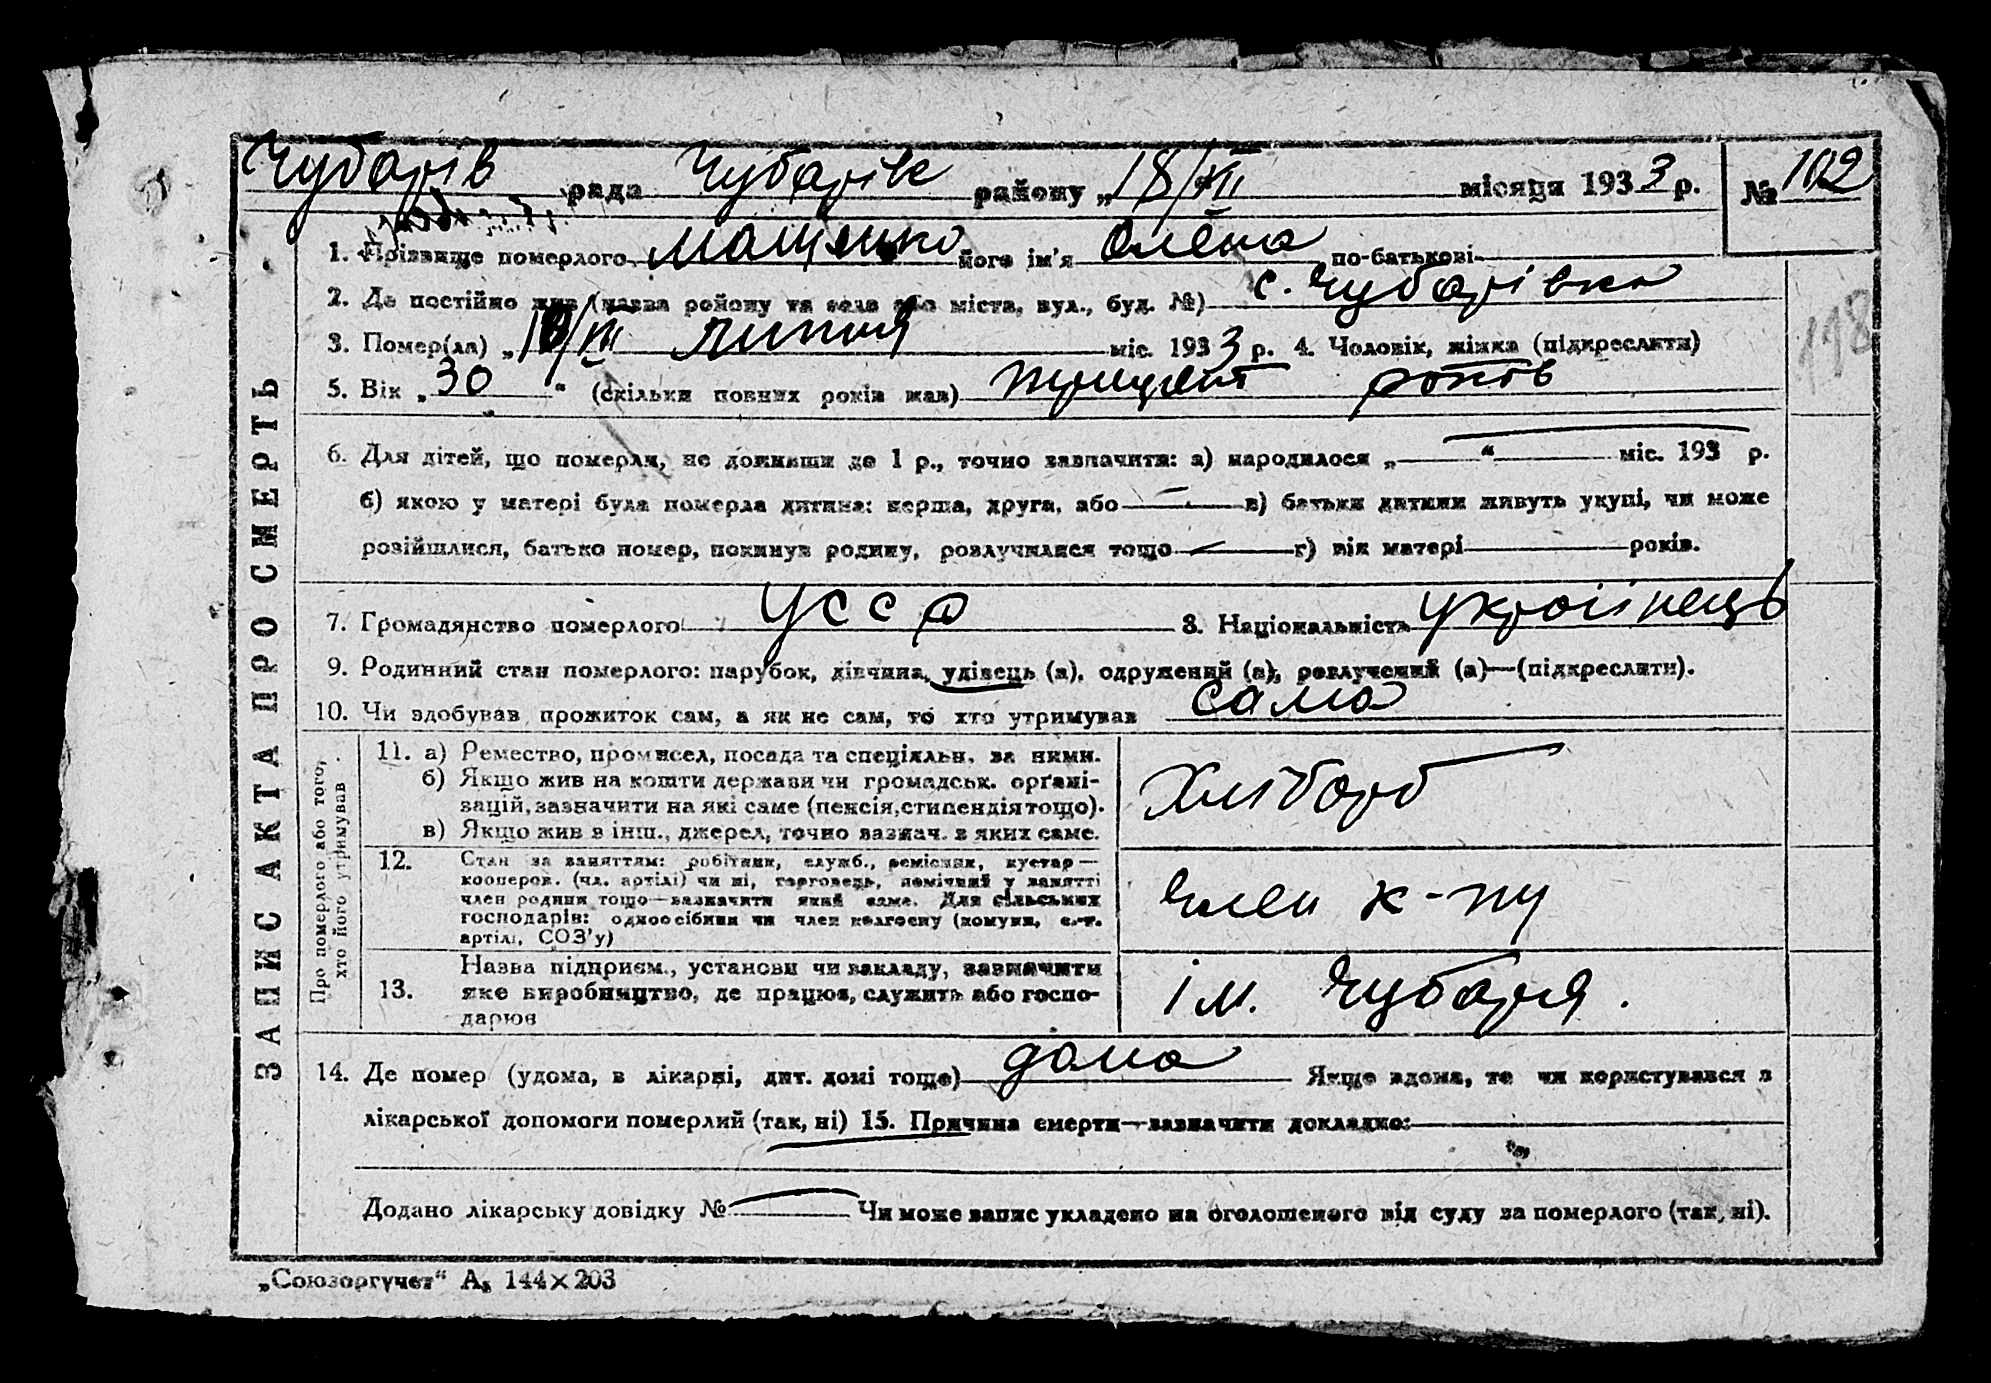 Чубарів рада Чубарівс району „18/VII місяця 1933 р. № 102
1. Прізвище померлого Мащенко його ім'я Олена по-батькові
2. Де постійно жив (назва району та села або міста, вул., буд. №) с. Чубарівка
3. Помер(ла) „ /VII липня міс. 1933 р. 4. Чоловік, жінка (підкреслити)
5. Вік „30“ (скільки повних років мав) тридцять років
198
6. Для дітей, що померли, не доживши до 1 р., точно зазначити: а) народилося „ “ міс. 193 р.
б) якою у матері була померла дитина: перша, друга, або в) батьки дитини живуть укупі, чи може
розійшлися, батько помер, покинув родину, розлучилися тощо г) вік матері років.
7. Громадянство померлого УССР 8. Національність українець
9. Родинний стан померлого: парубок, дівчина, удівець (а), одружений (а), розлучений (а)—(підкреслити).
10. Чи здобував прожиток сам, а як не сам, то хто утримував сама
ЗАПИС АКТА ПРО СМЕРТЬ
Про померлого або того,
хто його утримував
11. а) Ремество, промисел, посада та спеціяльн. за ними.
б) Якщо жив на кошти держави чи громадськ. орґані-
зацій, зазначити на які саме (пенсія, стипендія тощо).
в) Якщо жив з інш., джерел, точно зазнач. з яких саме.
Хлібороб
12. Стан за заняттям: робітник, служб., ремісник, кустар—
коопером. (чл. артілі) чи ні, торговець, помічний у занятті
член родини тощо—зазначити який саме. Для сільських
господарів: одноосібник чи член колгоспу (комуни, с.-г.
артілі, СОЗ'у)
член к-пу
13. Назва підприєм., установи чи закладу, зазначити
яке виробництво, де працює, служить або госпо-
дарює
ім. Чубаря.
14. Де помер (удома, в лікарні, дит. домі тощо) дома Якщо вдома, то чи користувався з
лікарської допомоги померлий (так, ні) 15. Причина смерти—зазначити докладно:
Додано лікарську довідку № Чи може запис укладено на оголошеного від суду за померлого (так, ні).
„Союзоргучет“ А₅ 144×203